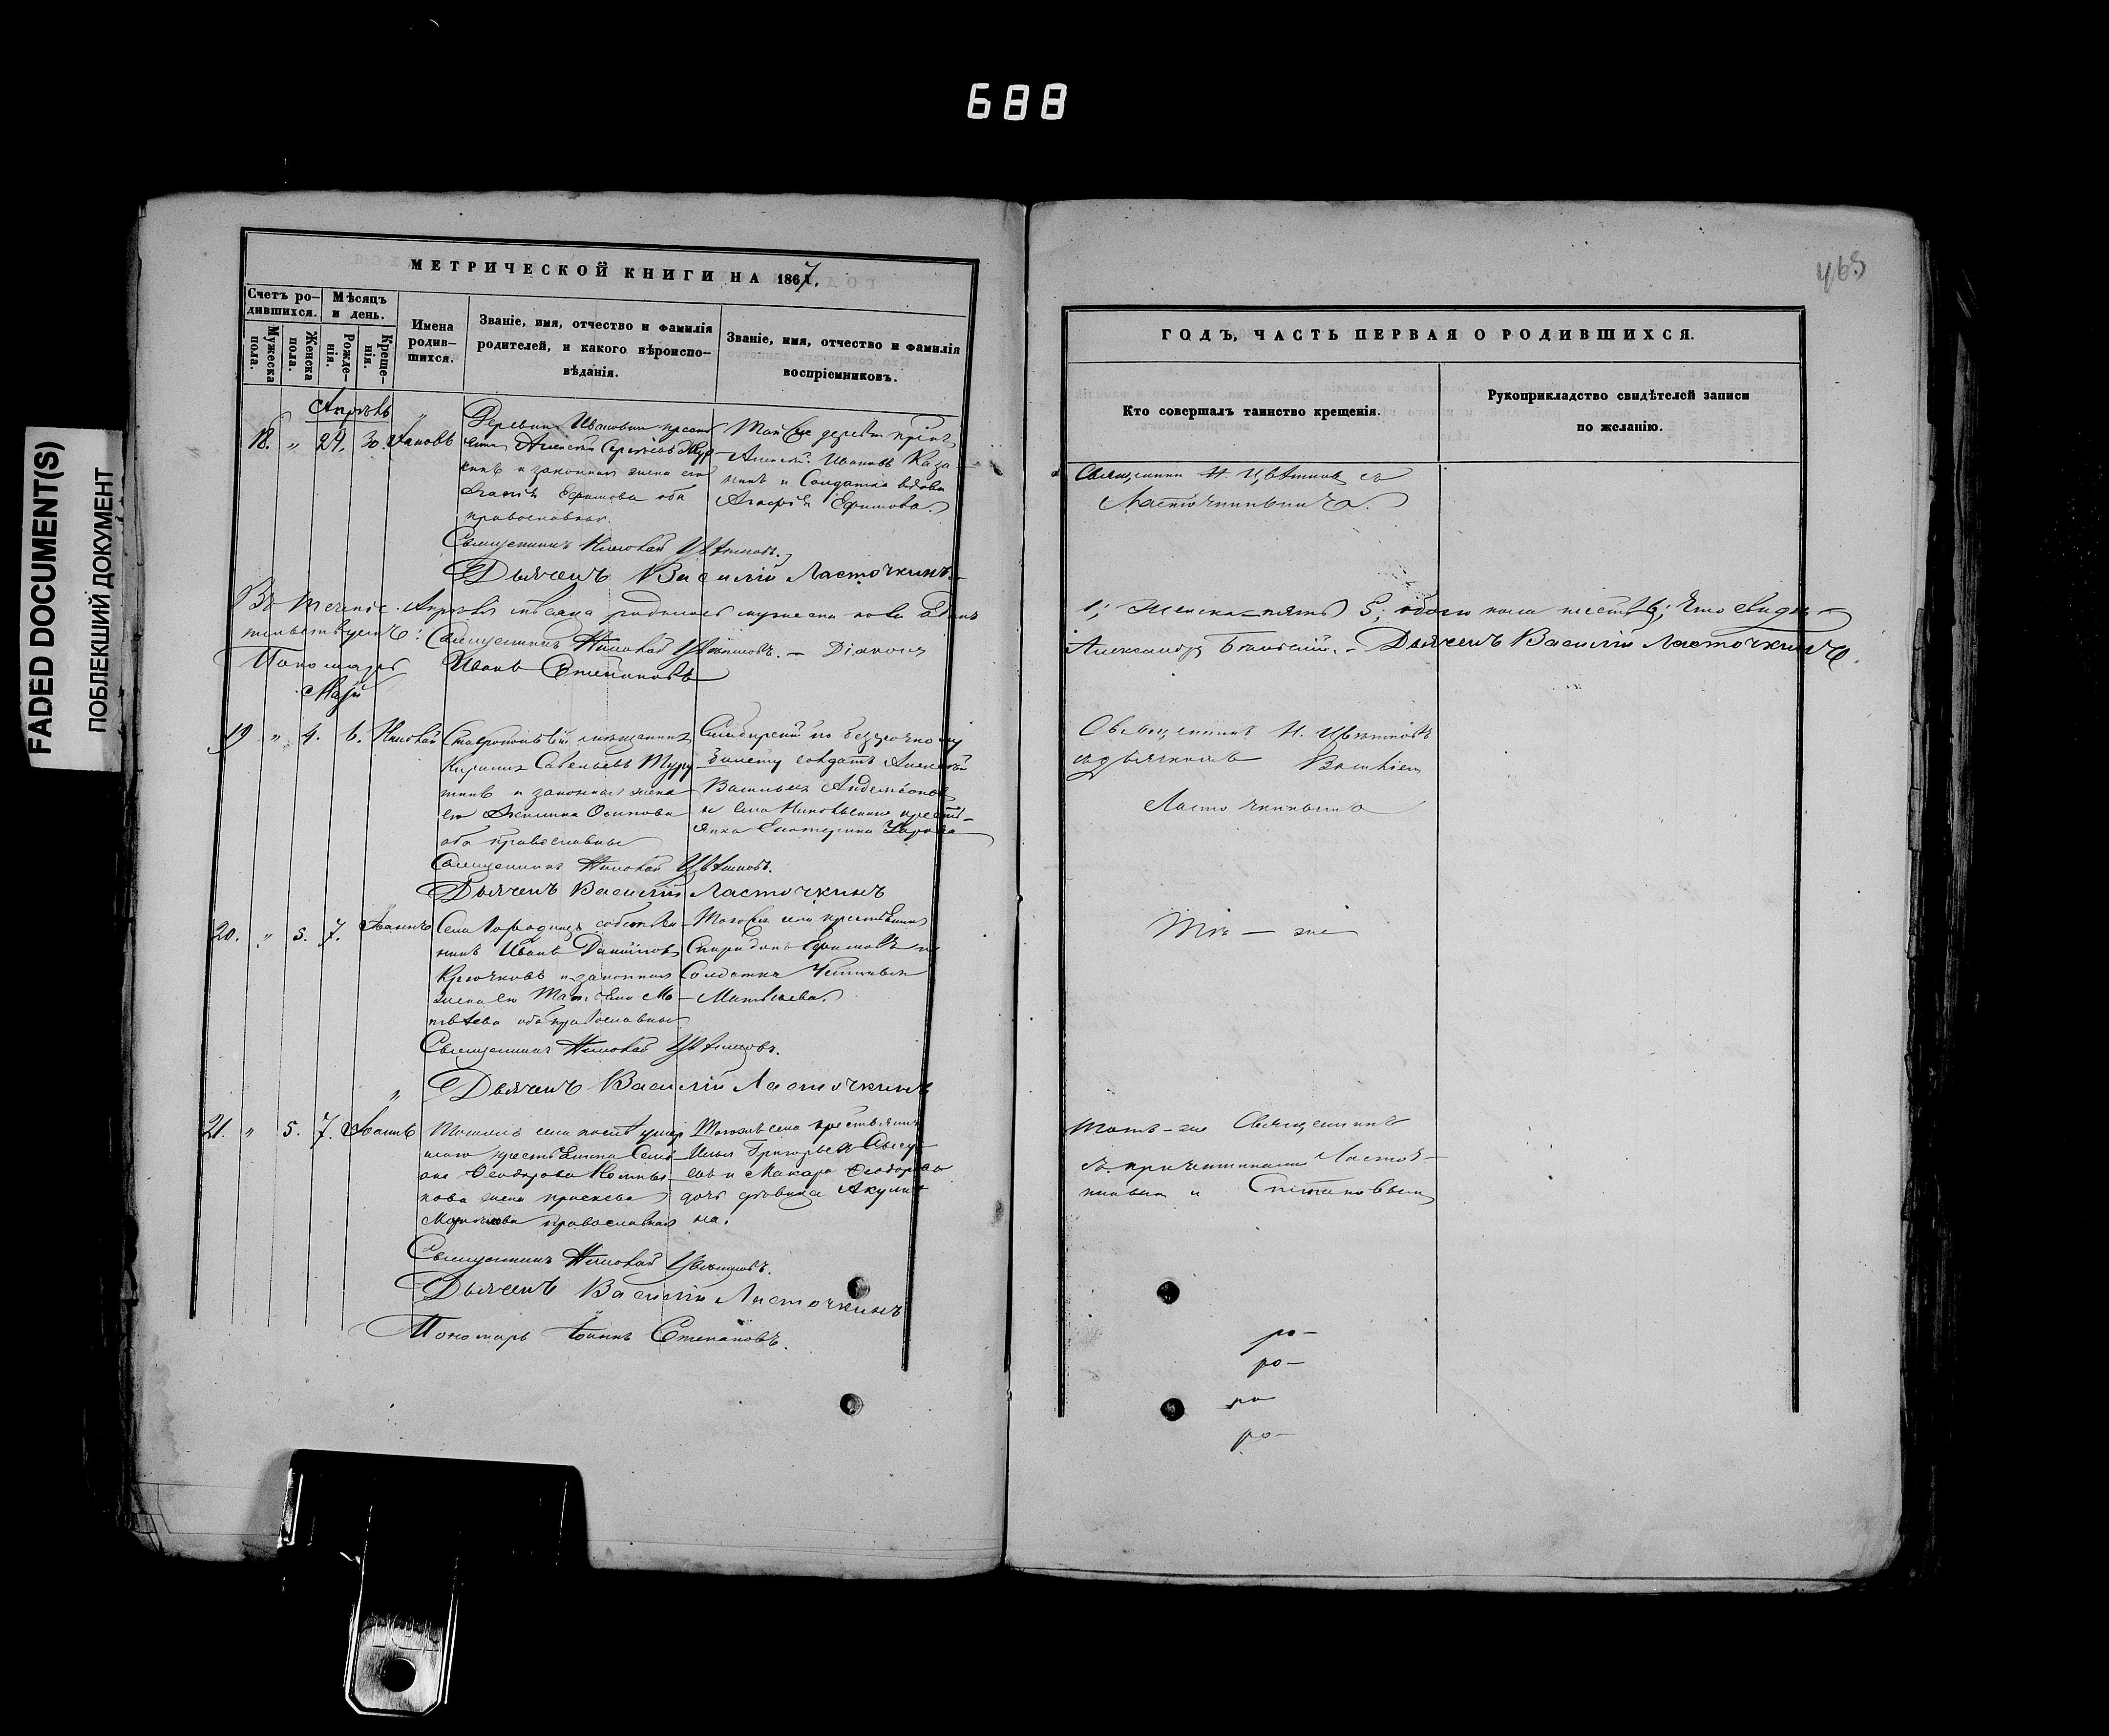 688
FADED DOCUMENT(S)
ПОБЛЕКШИЙ ДОКУМЕНТ
МЕТРИЧЕСКОЙ КНИГИ НА 1867.
Счетъ ро-
дившихся.
Мѣсяцъ
и день.
Мужеска
пола.
Женска
пола.
Рожде-
нія.
Креще-
нія.
Имена
родив-
шихся.
Званіе, имя, отчество и фамилія
родителей, и какого вѣроиспо-
вѣданія.
Званіе, имя, отчество и фамилія
воспріемниковъ.
Апрѣль
18. " 29. 30. Іаковъ
Деревни
Алексѣй Сергѣевъ
кинъ и законная жена его
Ефимова оба
православные.
Той же деревни
Алексѣй Ивановъ Каза
кинъ и Солдатка вдова
Агафія Ефимова.
Священникъ Николай Цвѣтковъ.
Дьячекъ Василій Ласточкинъ.
Въ теченіе Апрѣля мѣсяца родилось мужеска пола одинъ
тельствуютъ: Священникъ Николай Цвѣтковъ. – Діаконъ
Пономарь Иванъ Степановъ
Май
19 " 4. 6. Николай
Ставропольскій мѣщанинъ
Кириллъ Савельевъ Туру
тинъ и законная жена
его Осипова
оба православные
Симбирскій по безсрочному
билету солдатъ Алексѣй
Васильевъ
и села Никольскаго крестья-
нка Екатерина
Священникъ Николай Цвѣтковъ.
Дьячекъ Василій Ласточкинъ
20. " 5. 7. Іоаннъ
Села Городищъ собствен
никъ Иванъ Даниловъ
Крючковъ и законная
жена его Татьяна Ма-
твѣева оба православные
Того же села крестьянинъ
Спиридонъ Ефимовъ и
Солдатка
Матвѣева.
Священникъ Николай Цвѣтковъ.
Дьячекъ Василій Ласточкинъ
21. " 5. 7. Іоаннъ
Тогожъ села послѣ умер
шаго крестьянина
Ѳеодорова
жена
православная
Тогожъ села крестьянинъ
Илья Григорьевъ
и Макара Ѳеодорова
дочь дѣвица Акули-
на.
Священникъ Николай Цвѣтковъ.
Дьячекъ Василій Ласточкинъ
Пономарь Іоаннъ Степановъ.
ГОДЪ, ЧАСТЬ ПЕРВАЯ О РОДИВШИХСЯ.
Кто совершалъ таинство крещенія.
Рукоприкладство свидѣтелей записи
по желанію.
Священникъ Н. Цвѣтковъ съ
Ласточкинымъ.
1; женска – пять 5; обоего пола шесть 6; Что свидѣ-
Александръ Дьячекъ Василій Ласточкинъ.
Священникъ Н. Цвѣтковъ
съ дьячкомъ Василіемъ
Ласточкинымъ
Тѣ – же
Тотъ-же Священникъ
съ причетниками Ласточ-
кинымъ и Степановымъ
ро-
ро-
ро
ро-